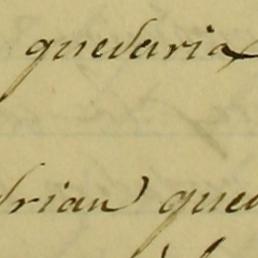 quedaria
drian que